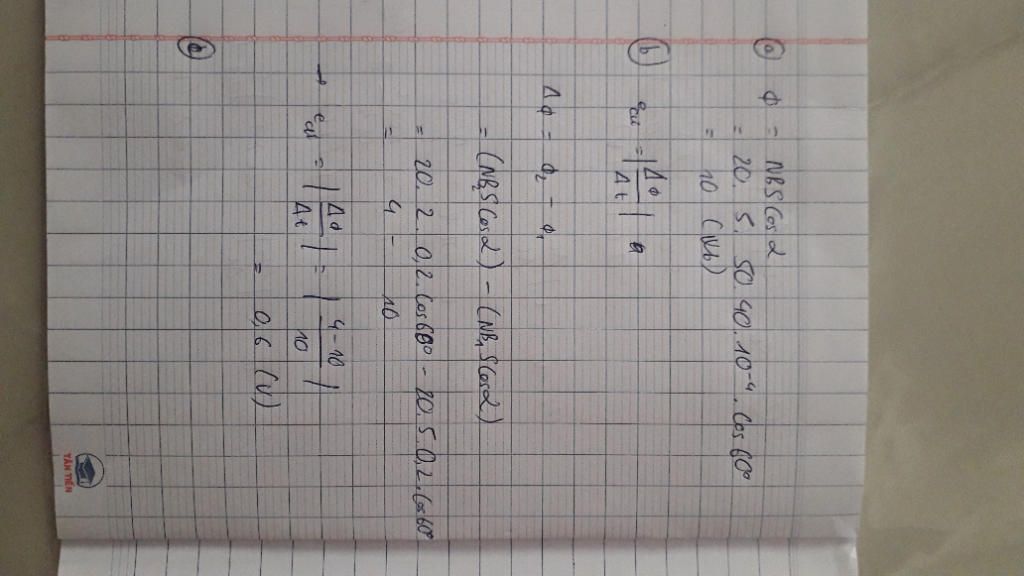 a) Φ = NBScosα
= 20. 5. 50. 40. 10⁻⁴. cos 60°
= 10 (Wb)
b) ecư = |ΔΦ/Δt|
ΔΦ = Φ₂ - Φ₁
= (NB₂Scosα) - (NB₁Scosα)
= 20. 2. 0,2. cos60° - 20. 5. 0,2. cos60°
= 4 - 10
→ ecư = |ΔΦ/Δt| = |4 - 10/10|
= 0,6 (V)
TÂN TIẾN